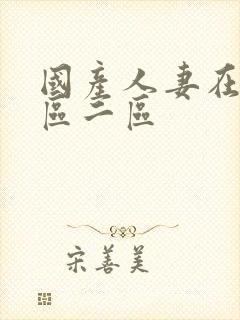 國產人妻在
區二區
宋善美